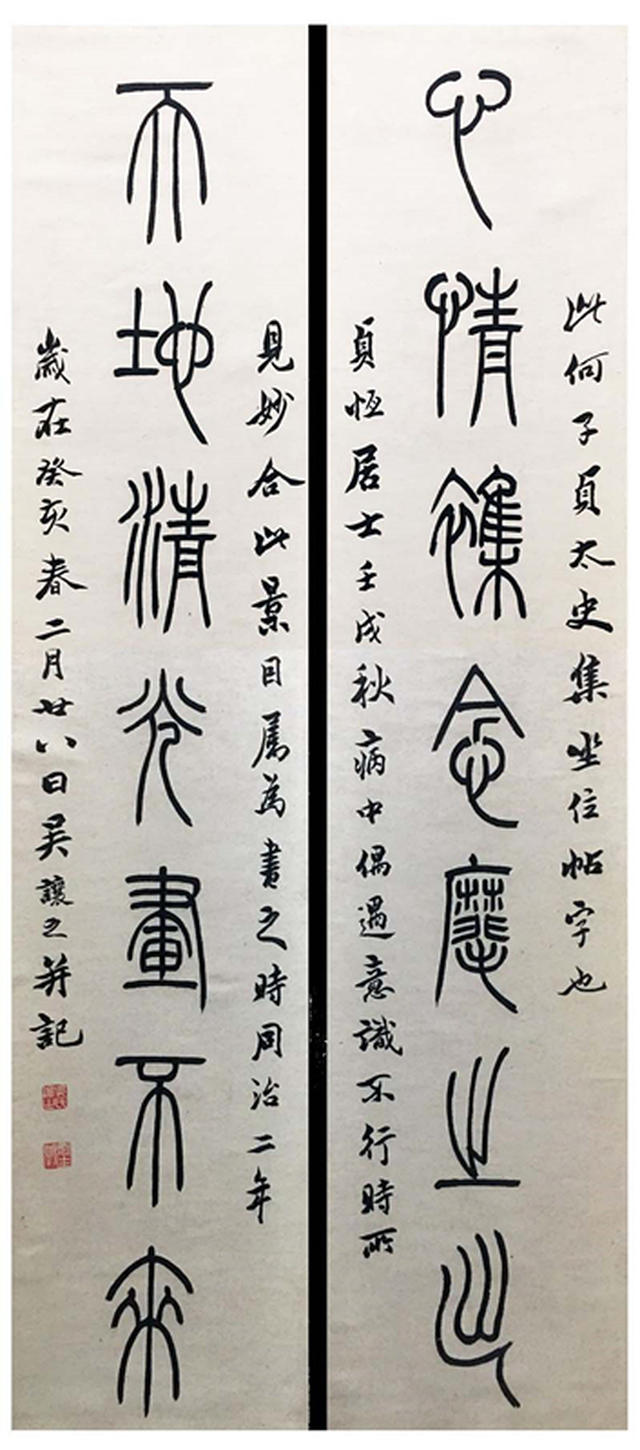 此何子貞太史集坐位帖字也
心情雜念麾之出
貞恆居士壬戌秋病中偶遇意識不行時所
見妙合此景目屬為書之時同治二年
天地清光畫不來
歲在癸亥春二月廿八日吳讓之并記